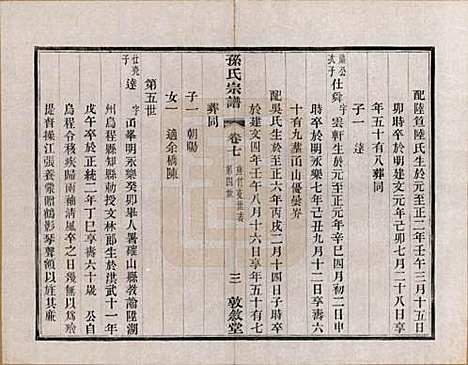 配陸筧陸氏生於元至正二年壬午三月十五日
卯時卒於明建文元年己卯七月二十八日享
年五十有八葬同
子一 達
仕舜 字雲軒生於至元元年辛巳四月初二日申
時卒於明永樂七年己丑九月十二日享年六
十有九葬㠭山優曇岕
配吳氏生於至正六年丙戌二月十四日子時卒
於建文四年壬午八月十六日享年五十有七
葬同
孫氏宗譜
卷七
第四世
三
敦敘堂
子一 朝暘
女一 適余橋陳
第五世
仕堯子
達 字
季明永樂癸卯舉人署確山縣教諭陞湖
州烏程縣知縣勅授文林郎生於洪武十一年
戊午卒於正統二年丁巳享壽六十歲 公自
烏程令移疾歸雨花為黃冠野服以老
提督操江張養蒙贈鶴影琴聲額以其廉